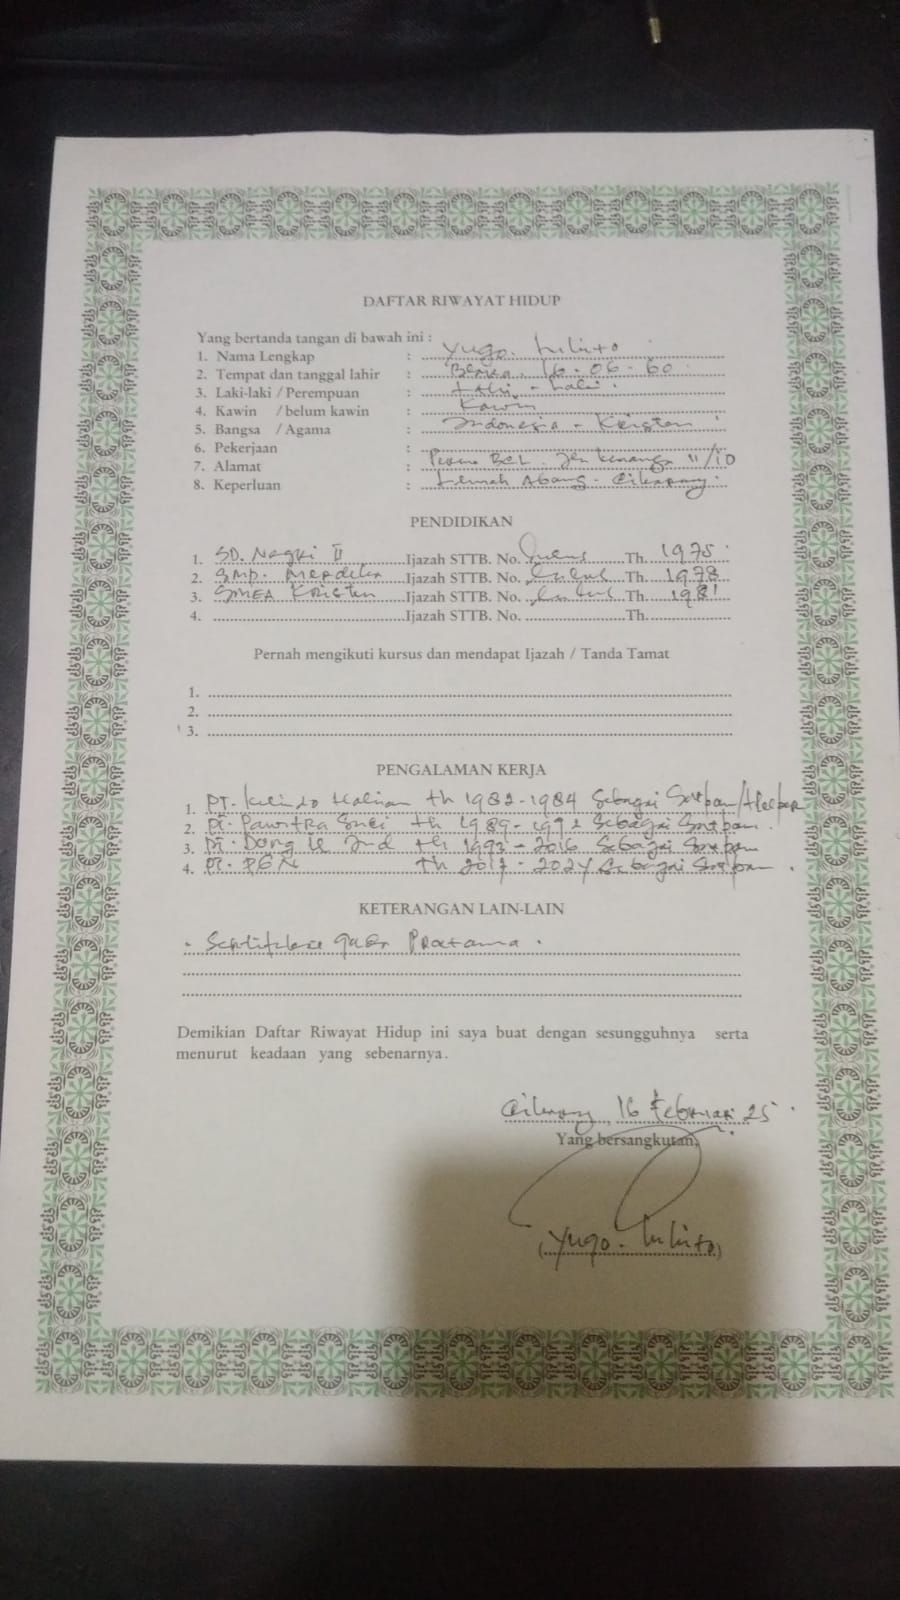 DAFTAR RIWAYAT HIDUP
Yang bertanda tangan di bawah ini :
1. Nama Lengkap : Yugo.
2. Tempat dan tanggal lahir : 16-06-60
3. Laki-laki / Perempuan : Laki - Laki.
4. Kawin / belum kawin : Kawin
5. Bangsa / Agama : Indonesia - Kristen
6. Pekerjaan :
7. Alamat : Perum BCL. Jln Kenanga 11/10
8. Keperluan : Lemah Abang. Cikarang.
PENDIDIKAN
1. SD. Negri II Ijazah STTB. No. Lulus Th. 1975
2. SMP. Merdeka Ijazah STTB. No. Lulus Th. 1978
3. SMEA Kristen Ijazah STTB. No. Lulus Th. 1981
4. Ijazah STTB. No. Th.
Pernah mengikuti kursus dan mendapat Ijazah / Tanda Tamat
1.
2.
3.
PENGALAMAN KERJA
1. PT. th 1982-1984 Sebagai Satpam/Helper
2. PT. th 1989-1992 Sebagai Satpam.
3. PT. Dong Ind th 1992-2016 Sebagai Satpam
4. PT. PGN th 2017-2024 Sebagai Satpam.
KETERANGAN LAIN-LAIN
- Sertifikat Pratama.
Demikian Daftar Riwayat Hidup ini saya buat dengan sesungguhnya serta
menurut keadaan yang sebenarnya.
Cikarang, 16 Februari 25.
Yang bersangkutan,
(Yugo.)